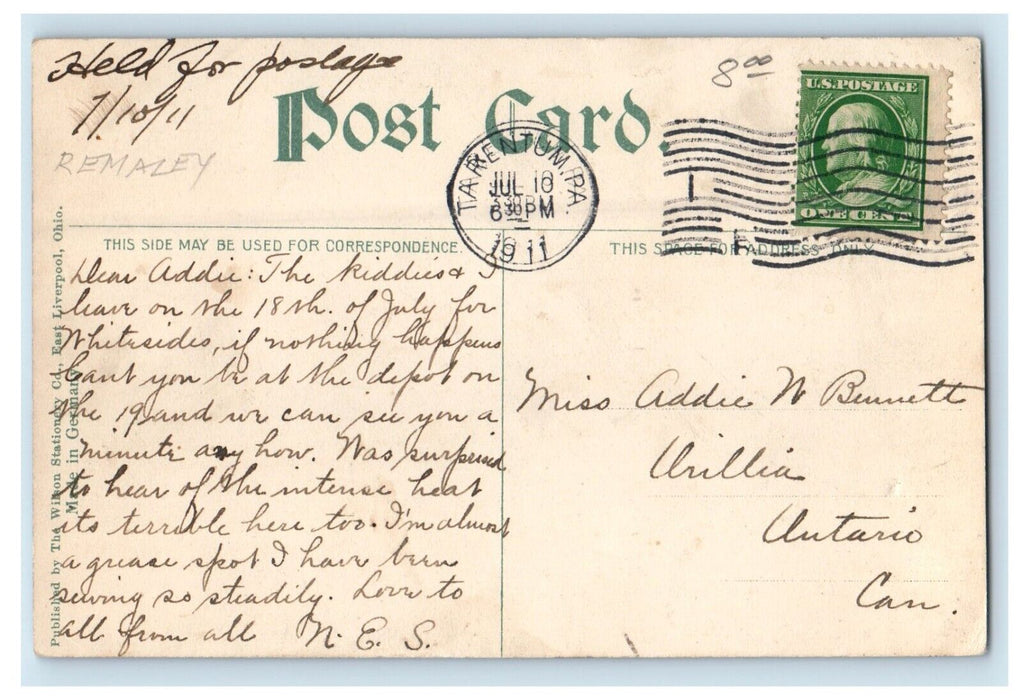 Held for postage
7/10/11
REMALEY
8.00
Post Card.
U.S. POSTAGE
ONE CENT
TARENTUM, PA.
JUL 10
630 PM
1911
THIS SIDE MAY BE USED FOR CORRESPONDENCE.
THIS SPACE FOR ADDRESS ONLY
Published by The Wilson Stationery Co., East Liverpool, Ohio.
Made in Germany
Dear Addie: The kiddies & I
leave on the 18th. of July for
Whitesides, if nothing happens
Cant you be at the depot on
the 19 and we can see you a
minute any how. Was surprised
to hear of the intense heat
its terrible here too. I'm almost
a grease spot I have been
sewing so steadily. Love to
all from all N. E. S.
Miss Addie W Bennett
Orillia
Ontario
Can.